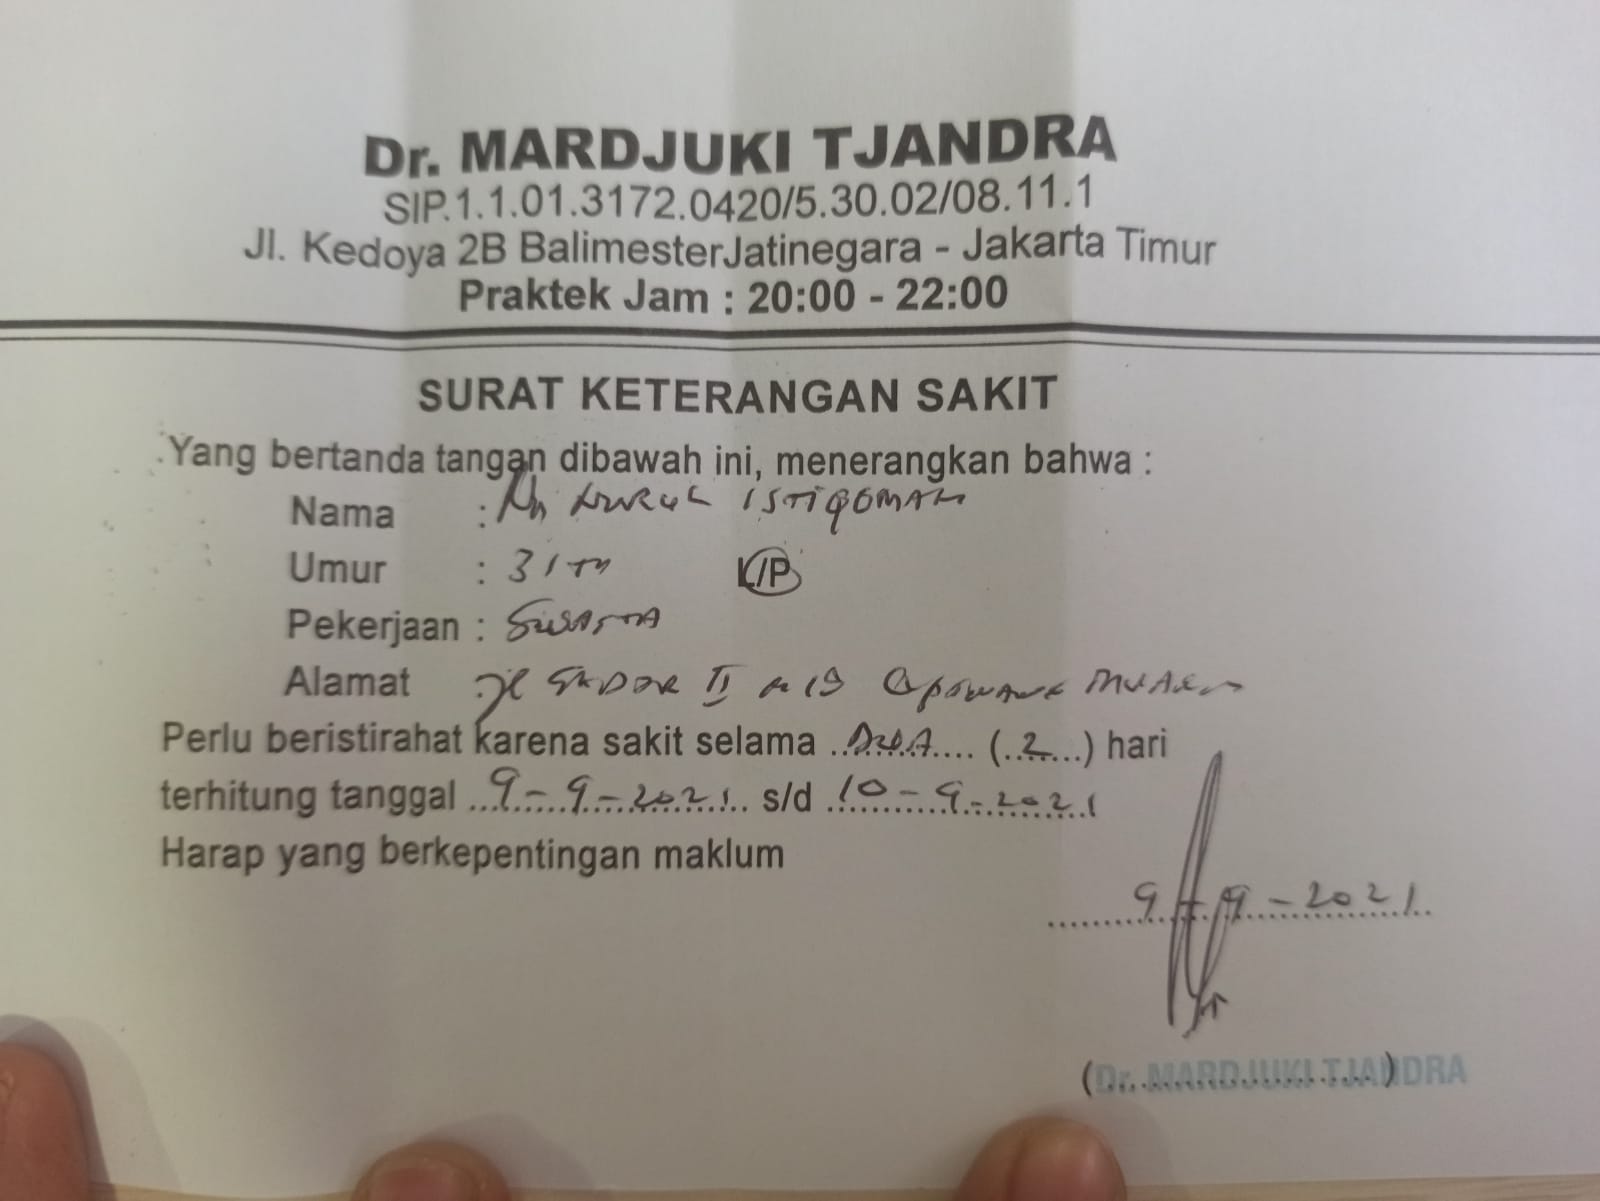 Dr. MARDJUKI TJANDRA
SIP.1.1.01.3172.0420/5.30.02/08.11.1
Jl. Kedoya 2B BalimesterJatinegara - Jakarta Timur
Praktek Jam : 20:00 - 22:00
SURAT KETERANGAN SAKIT
Yang bertanda tangan dibawah ini, menerangkan bahwa :
Nama : NURUL ISTIQOMAH
Umur : 31 TH L/P
Pekerjaan : SWASTA
Alamat : JL II CIPINANG MUARA
Perlu beristirahat karena sakit selama ..DUA.... (..2...) hari
terhitung tanggal ...9-9-2021... s/d ..10-9-2021
Harap yang berkepentingan maklum
9-9-2021
(Dr. MARDJUKI TJANDRA)